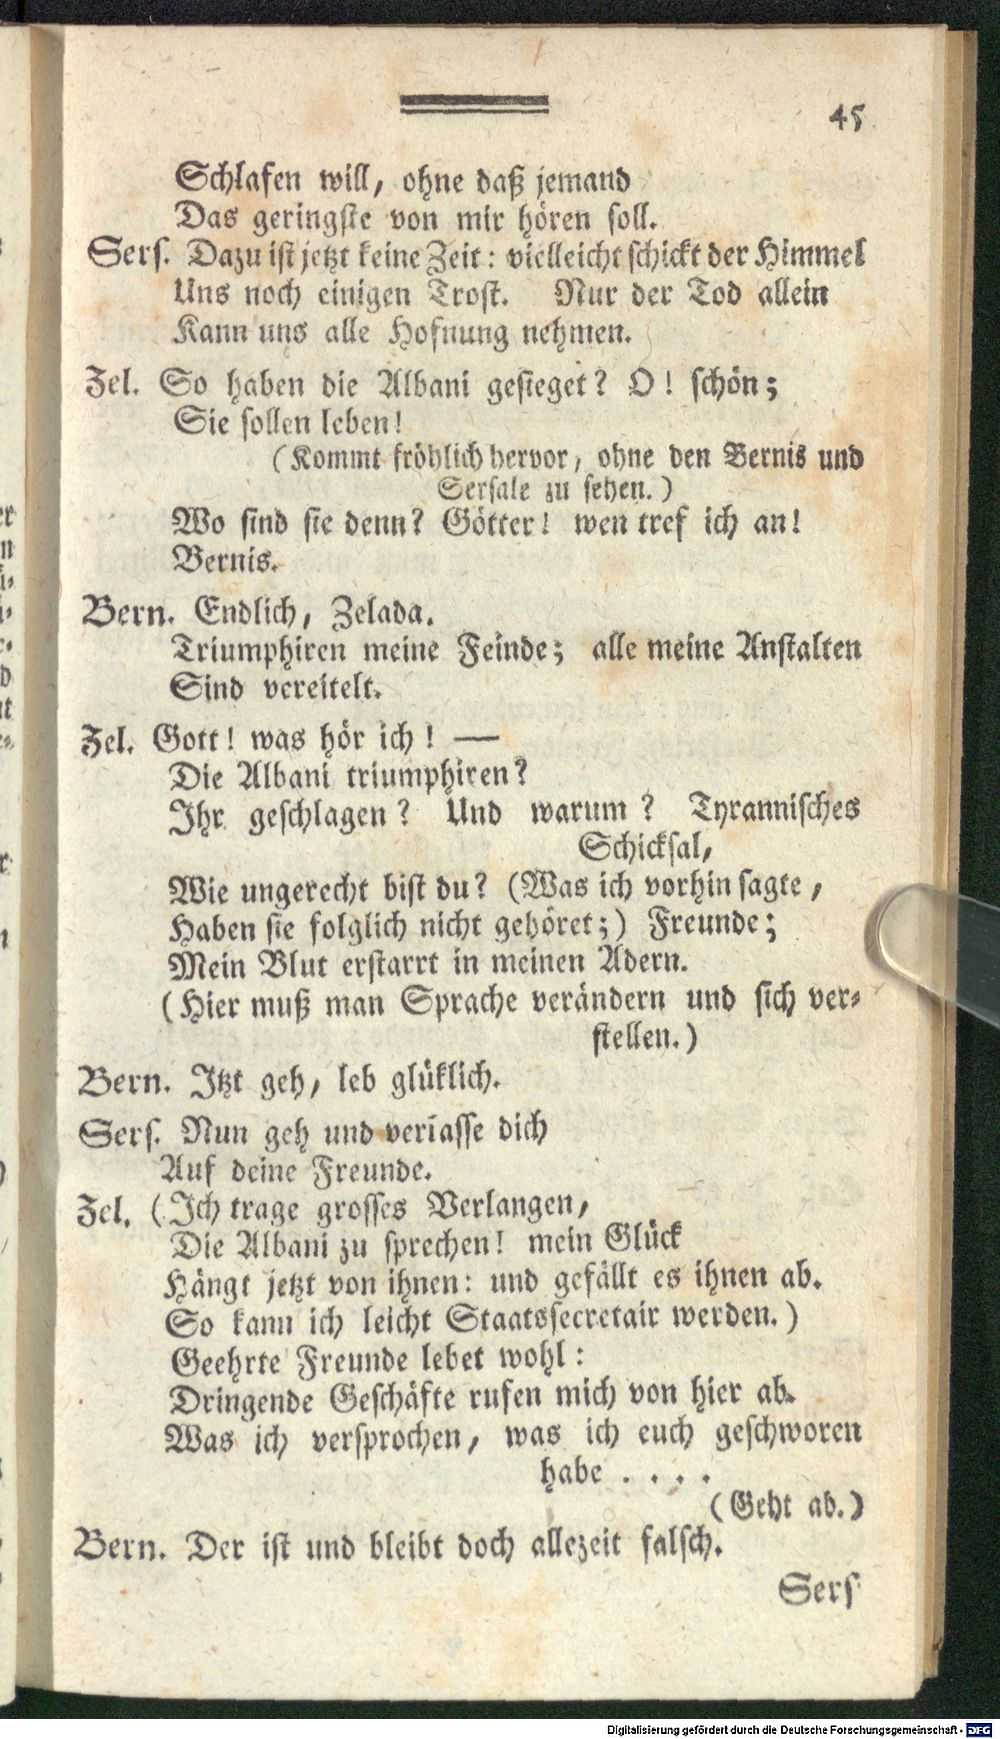 45
Schlafen will, ohne daß jemand
Das geringste von mir hören soll.
Sers. Dazu ist jetzt keine Zeit: vielleicht schickt der Himmel
Uns noch einigen Trost. Nur der Tod allein
Kann uns alle Hofnung nehmen.
Zel. So haben die Albani gesieget? O! schön;
Sie sollen leben!
(Kommt fröhlich hervor, ohne den Bernis und
Sersale zu sehen.)
Wo sind sie denn? Götter! wen tref ich an!
Bernis.
Bern. Endlich, Zelada.
Triumphiren meine Feinde; alle meine Anstalten
Sind vereitelt.
Zel. Gott! was hör ich! —
Die Albani triumphiren?
Ihr geschlagen? Und warum? Tyrannisches
Schicksal,
Wie ungerecht bist du? (Was ich vorhin sagte,
Haben sie folglich nicht gehöret;) Freunde;
Mein Blut erstarrt in meinen Adern.
(Hier muß man Sprache verändern und sich ver-
stellen.)
Bern. Itzt geh, leb glüklich.
Sers. Nun geh und verlasse dich
Auf deine Freunde.
Zel. (Ich trage grosses Verlangen,
Die Albani zu sprechen! mein Glück
Hängt jetzt von ihnen: und gefällt es ihnen ab.
So kann ich leicht Staatssecretair werden.)
Geehrte Freunde lebet wohl:
Dringende Geschäfte rufen mich von hier ab.
Was ich versprochen, was ich euch geschworen
habe . . . .
(Geht ab.)
Bern. Der ist und bleibt doch allezeit falsch.
Sers
Digitalisierung gefördert durch die Deutsche Forschungsgemeinschaft - DFG